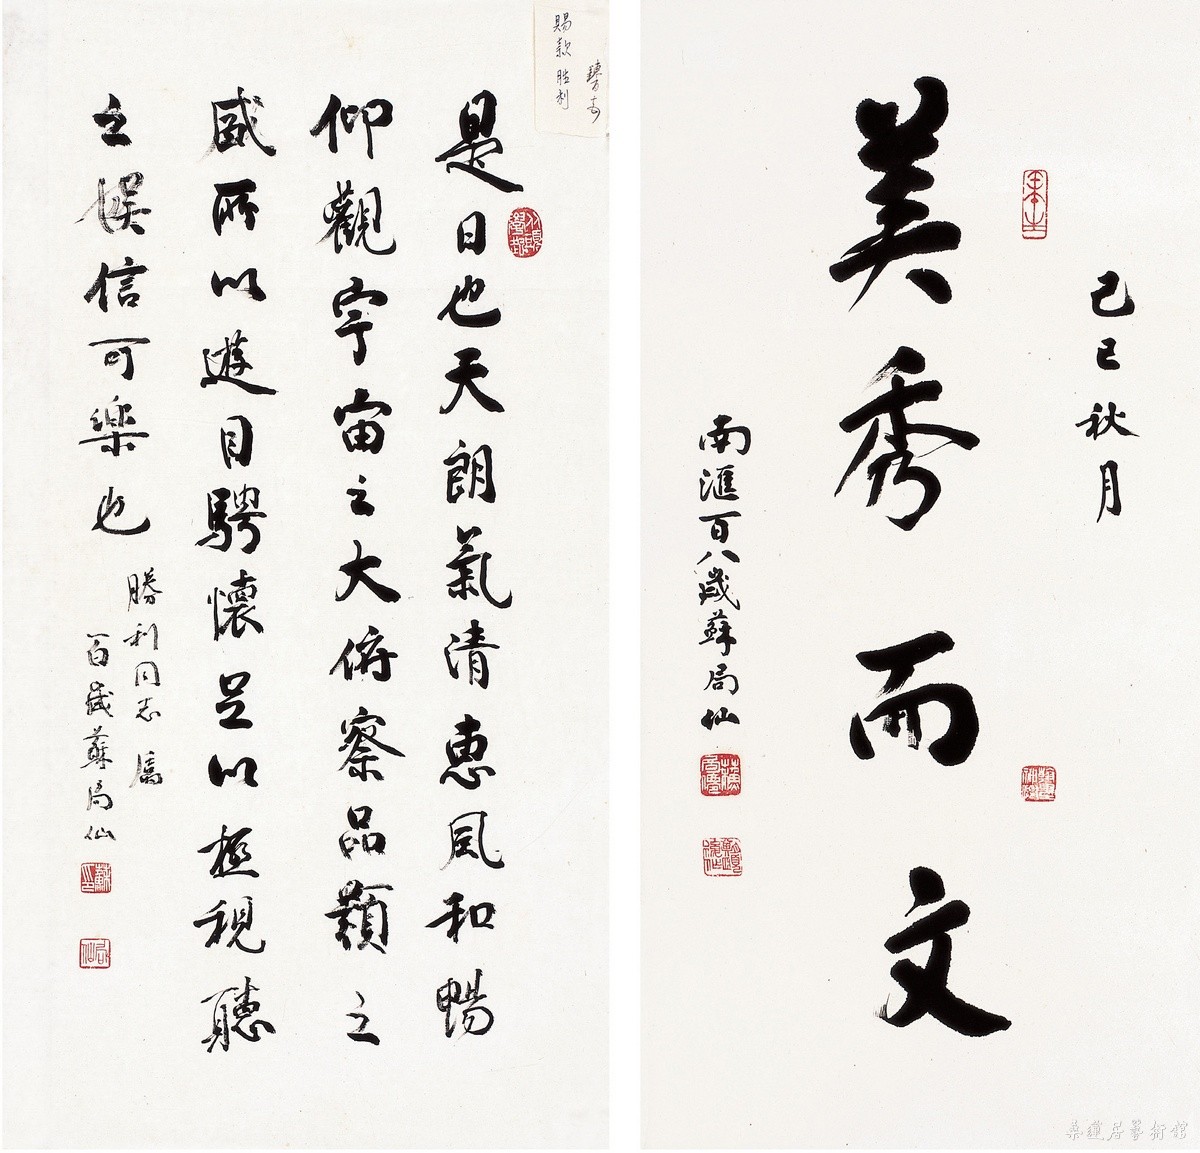 是日也天朗氣清惠風和暢
仰觀宇宙之大俯察品類之
盛所以遊目騁懷足以極視聽
之娛信可樂也
勝利同志屬
百歲蘇局仙
賜款 胜利
己巳秋月
美秀而文
南滙百八歲蘇局仙